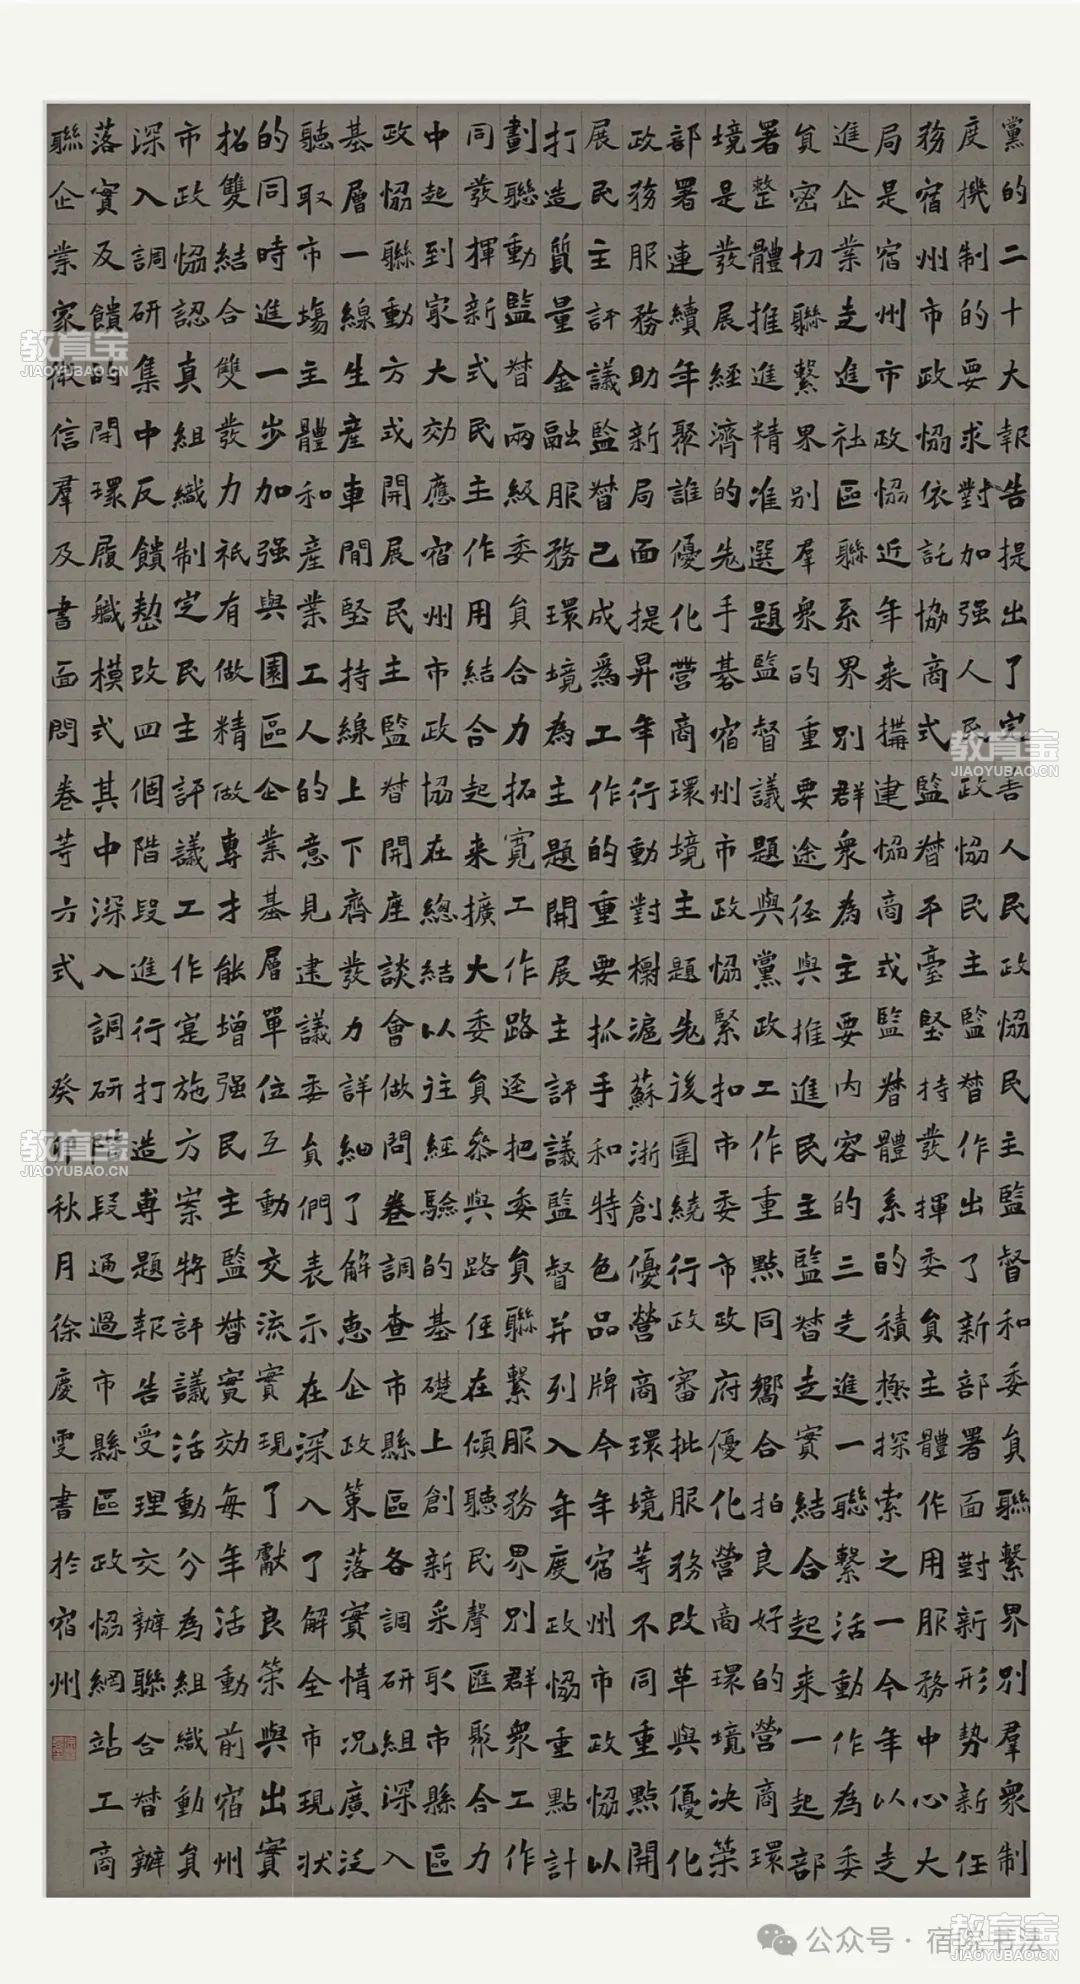 黨的二十大報告提出了完善人民政協民主監督和委員聯繫界別羣衆制
度機制的要求對加强人民政協民主監督作出了新部署面對新形勢新任
務宿州市政協依託協商式監督平臺堅持發揮委員主體作用服務中心大
局是宿州市政協近年来搆建協商式監督體系的積極探索之一今年以走
進企業走進社區聯系界別群衆為主要內容的三走進一聯繫活動作為委
員密切聯繫界別羣衆的重要途径與推進民主監督走實結合起来一起部
署整體推進精准選題監督議題與黨政工作重點同嚮合拍良好的營商環
境是發展經濟的先手碁宿州市政協緊扣市委市政府優化營商環境决策
部署連續年聚誰優化營商環境主題先後圍繞行政審批服務改革與優化
政務服務助新局面提昇年行動對櫥滬蘇浙創優營商環境等不同重點開
展民主評議監督己成爲工作的重要抓手和特色品牌今年宿州市政協以
打造質量金融服務環境為主題開展主評議監督并列入年度政協重點計
劃聯動監督兩級委員合力拓寬工作路逐把委員聯繫服務界別群衆工作
同發揮新式民主作用結合起来擴大委員叅與路任在傾聽民聲匯聚合力
中起到家大効應宿州市政協在總結以往經驗的基礎上創新采取市縣區
政協聯動方式開展民主監督開座談會做問卷調查市縣區各調研組深入
基層一線生産車間堅持線上下齊發力詳細了解惠企政策落實情况廣泛
聽取市場主體和産業工人的意見建議委員們表示在深入了解全市現状
的同時進一步加强與園區企業基層單位互動交流實現了獻良策與出實
招雙結合雙發力祇有做精做專才能增强民主監督實効每年活動前宿州
市政協認真組織制定民主評議工作寔施方案將評議活動分為組織動員
深入調研集中反饋懃改四個階段進行打造専題報告受理交辦聯合督辦
落實及饋的閉環履職模式其中深入調研階段通過市縣區政協網站工商
聯企業家微信羣及書面問卷等方式 癸卯秋月徐慶雯書於宿州
教育宝
JIAOYUBAO.CN
教育宝
JIAOYUBAO.CN
教育宝
JIAOYUBAO.CN
公众号·宿院书法
教育宝
JIAOYUBAO.CN